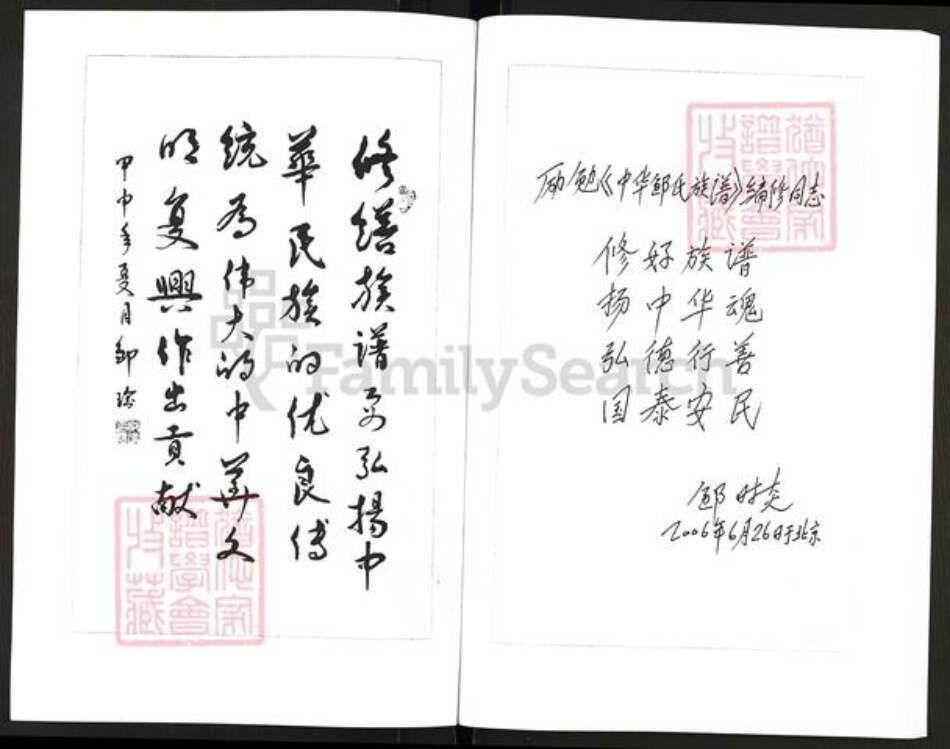 修缮族谱要弘揚中
華民族的优良传
統為伟大的中華文
明复興作出貢献
甲申年夏月鄒瑜
励勉《中华邹氏族谱》编修同志
修好族谱
扬中华魂
弘德行善
国泰安民
邹时炎
2006年6月26日于北京
譜學會
收藏
FamilySearch